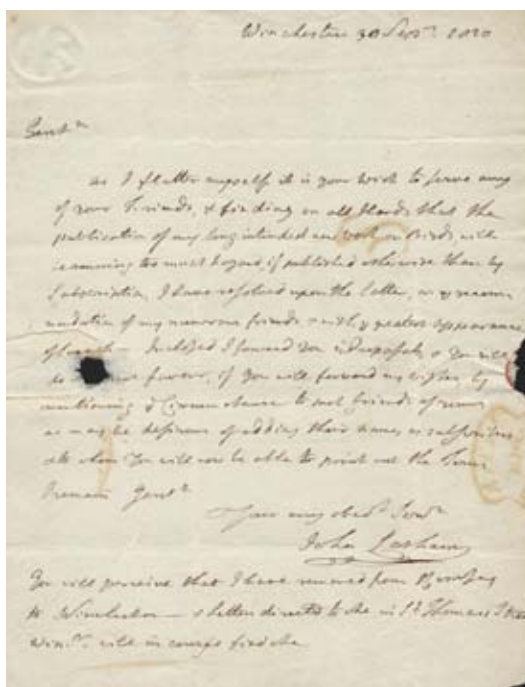 Winchester 30 Sepr. 1820
Gentn
as I flatter myself it is your wish to serve any
of your Friends, & finding on all Hands that the
publication of my long intended new work on Birds, will
be running too much hazard, if published otherwise than by
Subscription, I have resolved upon the latter, on ye recom-
mendation of my numerous friends & with ye greatest appearance
of Inclosed I forward you & You will
do favour, if You will forward my wishes, by
mentioning ye Circumstance to such friends of yours
as may be desirous of adding their names as subscribers
& to whom You will now be able to point out the Terms
I remain Gentn
Your very obedt Servt
John Latham
You will perceive that I have removed from Romsey
to Winchester & letters directed to me in St Thomas's Street
Winr. will in course find me